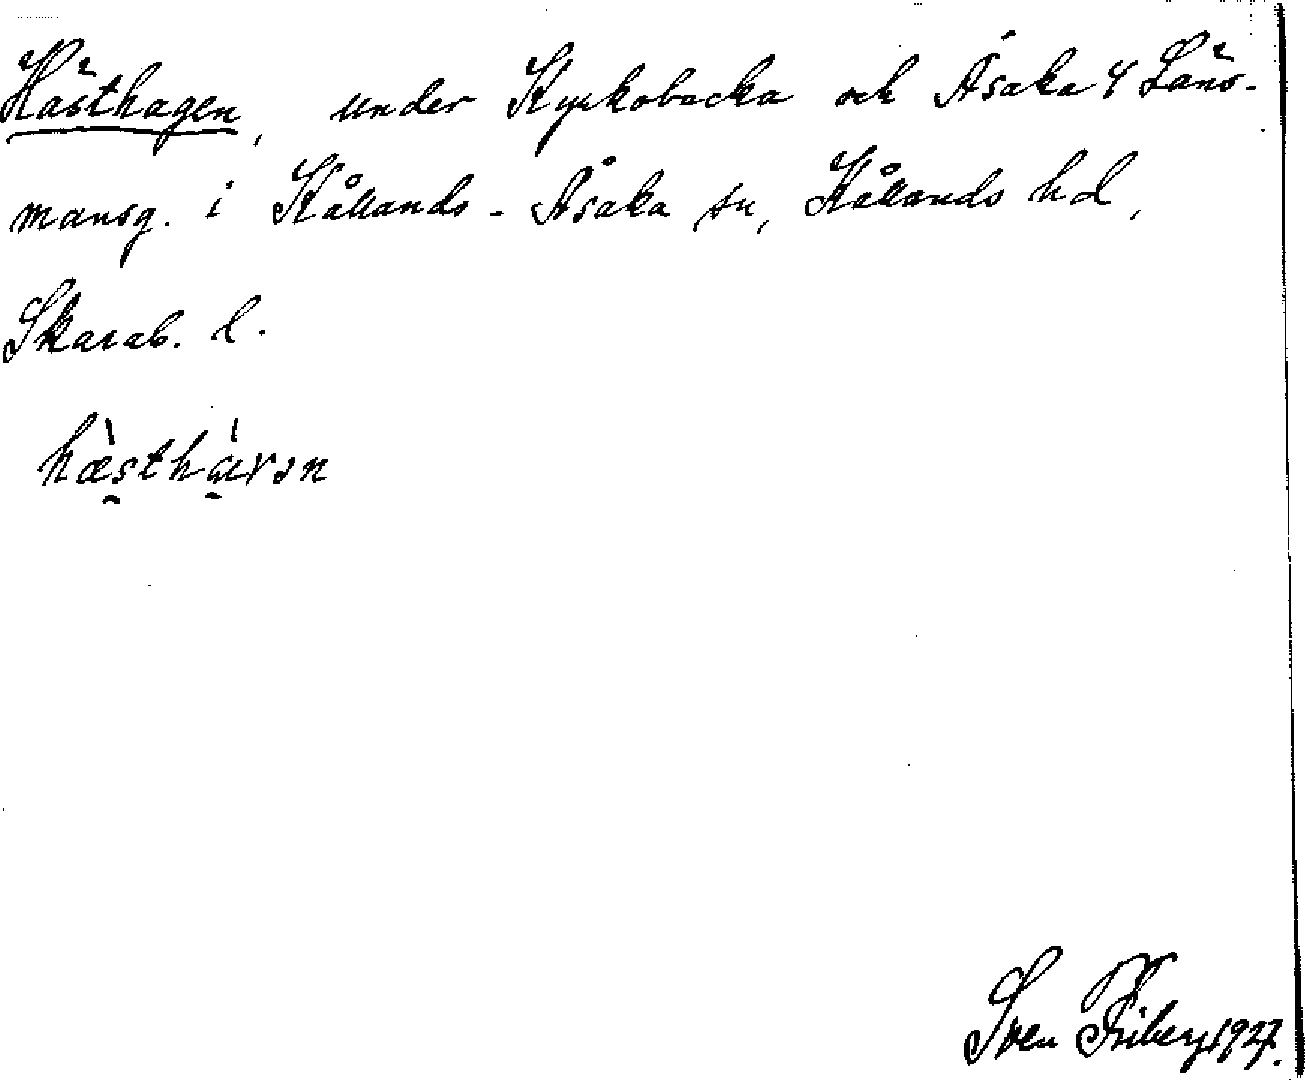 Hästhagen, under Kyrkobacka och Åsaka 4 Läns-
mansg. i Kållands-Åsaka sn, Kållands hd,
Skarab. l.
hæ̀sthàɣən
Sven Friberg 1927.